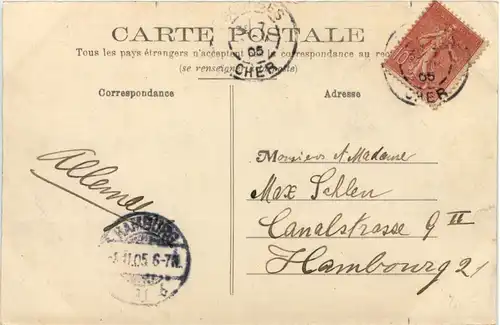 CARTE POSTALE
Tous les pays étrangers n'acceptent la correspondance au rec
(se renseign poste)
Correspondance
Adresse
05
CHER
05
CHER
10
Allemag
Monsieur et Madame
Max Schlen
Canalstrasse 9 II
Hambourg 21
HAMBURG
11.05. 6-7N.